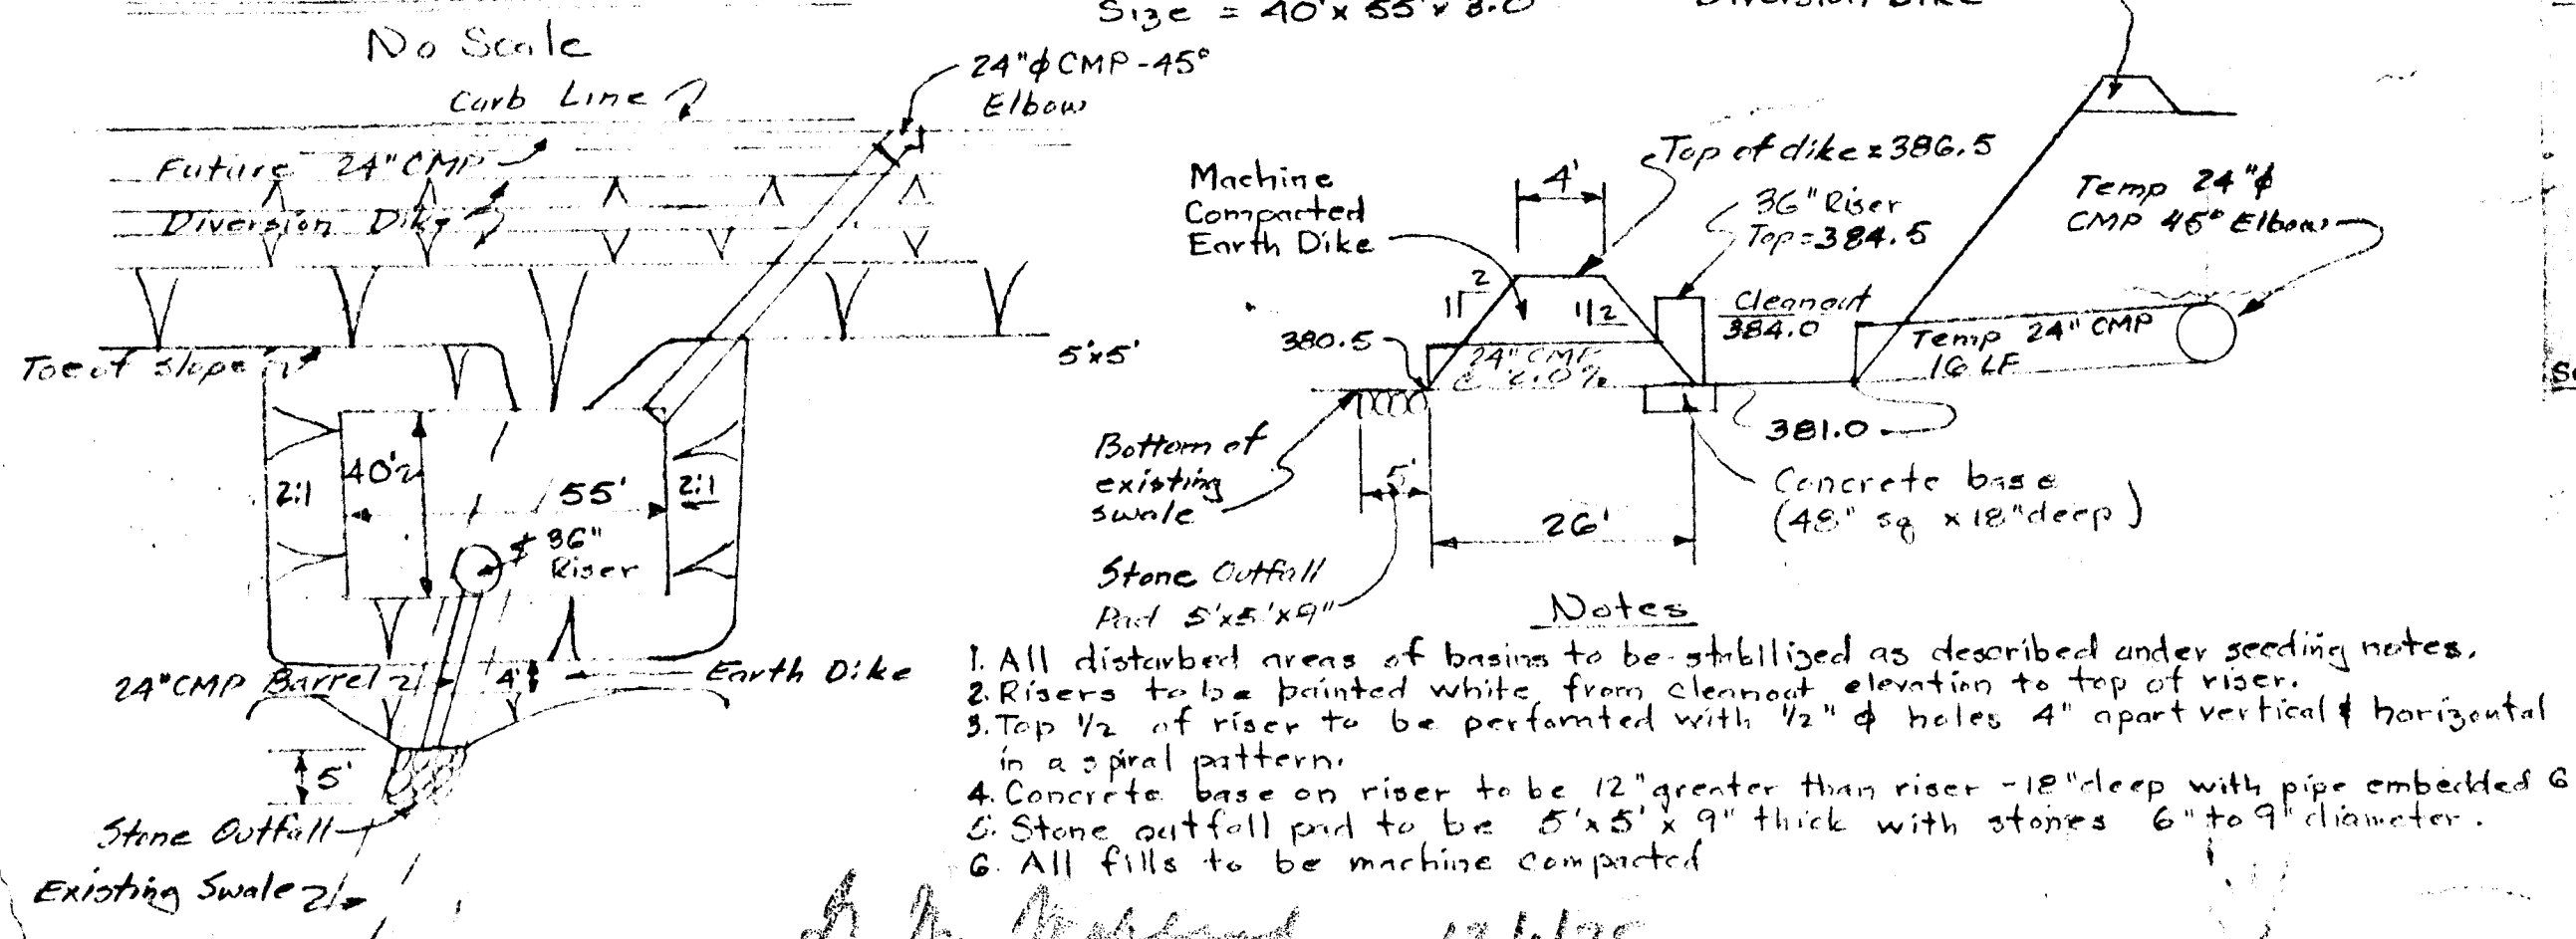 Size = 40'x 55'x 3.0'
Diversion Dike
No Scale
24"ϕ CMP-45°
Elbow
Curb Line
Future 24" CMP
Diversion Dike
Toe of slope
5'x5'
40'
2:1
55'
2:1
36"
Riser
24" CMP Barrel
4'
Earth Dike
5'
Stone Outfall
Existing Swale
Machine
Compacted
Earth Dike
4'
Top of dike = 386.5
36" Riser
Top = 384.5
Temp 24"ϕ
CMP 45° Elbow
2
1
1
2
Cleanout
384.0
380.5
24" CMP
@ 2.0%
Temp 24" CMP
16 LF
381.0
Bottom of
existing
swale
5'
26'
Concrete base
(48" sq x 18" deep)
Stone Outfall
Pad 5'x5'x9"
Notes
1. All disturbed areas of basins to be stabilized as described under seeding notes.
2. Risers to be painted white from cleanout elevation to top of riser.
3. Top 1/2 of riser to be perforated with 1/2" ϕ holes 4" apart vertical & horizontal
in a spiral pattern.
4. Concrete base on riser to be 12" greater than riser - 18" deep with pipe embedded 6
5. Stone outfall pad to be 5'x5' x 9" thick with stones 6" to 9" diameter.
6. All fills to be machine compacted